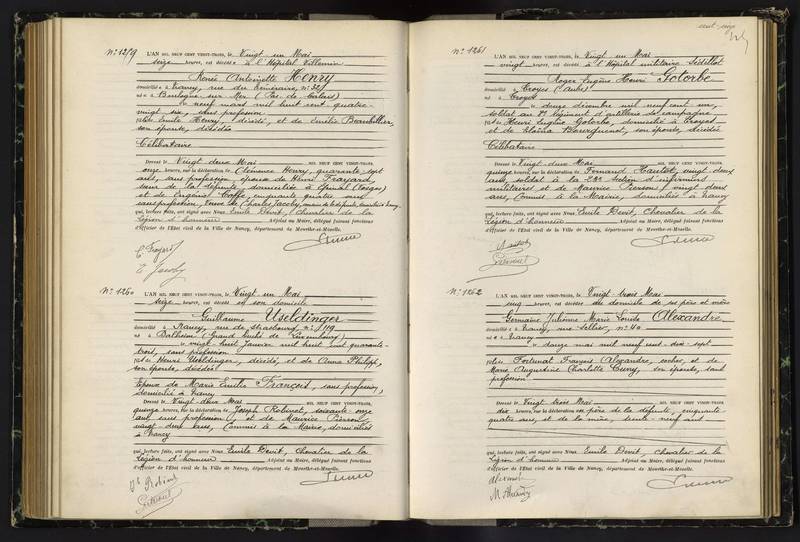 N° 1259
L'AN MIL NEUF CENT VINGT-TROIS, le Vingt un Mai
seize heures, est décédée à l'Hôpital Villemin
Renée Antoinette Henry
domiciliée à Nancy, rue du Téméraire, n° 52
née à Boulogne sur Mer (Pas de Calais)
le neuf mars mil huit cent quatre-
vingt six, sans profession
fille de Emile Henry, décédé, et de Emélie
son épouse, décédée
Célibataire
Dressé le Vingt deux Mai MIL NEUF CENT VINGT-TROIS,
onze heures, sur la déclaration de Clémence Henry, quarante sept
ans, sans profession, épouse de Henri Frayard,
sœur de la défunte, domiciliée à Epinal (Vosges)
et de Eugénie cinquante quatre ans
sans profession, veuve de Charles Jacoby, domiciliée à Nancy,
qui, lecture faite, ont signé avec Nous Emile Devit, Chevalier de la
Légion d'honneur Adjoint au Maire, délégué faisant fonctions
d'officier de l'Etat civil de la Ville de Nancy, département de Meurthe-et-Moselle.
E. Jacoby
N° 1260
L'AN MIL NEUF CENT VINGT-TROIS, le Vingt un Mai
seize heures, est décédé en son domicile
Guillaume Useldinger
domicilié à Nancy, rue de Strasbourg, n° 119
né à Dalheim (Grand Duché de Luxembourg)
le vingt huit Janvier mil huit cent quarante-
trois, sans profession
fils de Henri Useldinger, décédé, et de Anne Philipp,
son épouse, décédée
Epoux de Marie Emilie François, sans profession,
domiciliée à Nancy
Dressé le Vingt deux Mai MIL NEUF CENT VINGT-TROIS,
quinze heures, sur la déclaration de Joseph Robinet, soixante onze
ans, sans profession, et de Maurice Pierson,
vingt deux ans, Commis à la Mairie, domiciliés
à Nancy
qui, lecture faite, ont signé avec Nous Emile Devit, Chevalier de la
Légion d'honneur Adjoint au Maire, délégué faisant fonctions
d'officier de l'Etat civil de la Ville de Nancy, département de Meurthe-et-Moselle.
N° 1261
L'AN MIL NEUF CENT VINGT-TROIS, le Vingt un Mai
vingt heures, est décédé à l'Hôpital militaire Sédillot
Roger Eugène Henri Golorbe
domicilié à Troyes (Aube)
né à Troyes
le douze décembre mil neuf cent un,
soldat au Régiment d'artillerie de campagne
fils de Henri Eugène Golorbe, domicilié à Troyes
et de Bourguenot, son épouse, décédée
Célibataire
Dressé le Vingt deux Mai MIL NEUF CENT VINGT-TROIS,
quinze heures, sur la déclaration de Fernand Hautot, vingt deux
ans, soldat à la section d'infirmiers
militaires et de Maurice Pierson, vingt deux
ans, Commis à la Mairie, domiciliés à Nancy
qui, lecture faite, ont signé avec Nous Emile Devit, Chevalier de la
Légion d'honneur Adjoint au Maire, délégué faisant fonctions
d'officier de l'Etat civil de la Ville de Nancy, département de Meurthe-et-Moselle.
N° 1262
L'AN MIL NEUF CENT VINGT-TROIS, le Vingt-trois Mai
cinq heures, est décédée au domicile de ses père et mère
Germaine Julienne Marie Louise Alexandre
domiciliée à Nancy, rue Sellier, n° 40
née à Nancy
le douze mai mil neuf cent dix sept
fille de Fortunat François Alexandre, cocher, et de
Marie Augustine Charlotte Cuny, son épouse, sans
profession
Dressé le Vingt trois Mai MIL NEUF CENT VINGT-TROIS,
dix heures, sur la déclaration du père de la défunte, cinquante
quatre ans, et de la mère, trente neuf ans
qui, lecture faite, ont signé avec Nous Emile Devit, chevalier de la
Légion d'honneur Adjoint au Maire, délégué faisant fonctions
d'officier de l'Etat civil de la Ville de Nancy, département de Meurthe-et-Moselle.